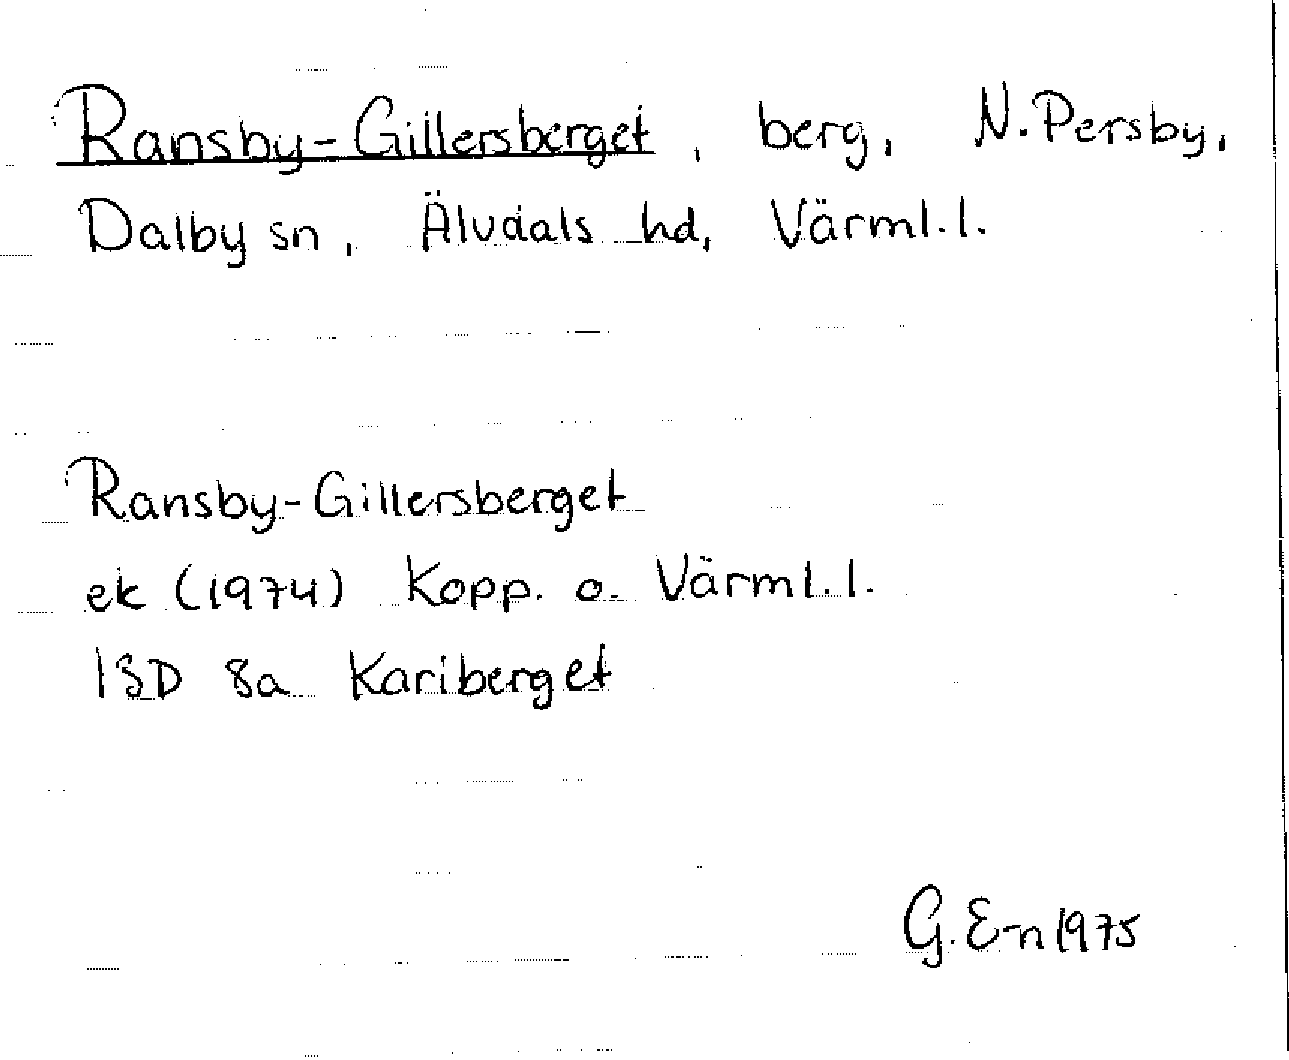 Ransby-Gillersberget, berg, N. Persby,
Dalby sn, Älvdals hd, Värml. l.
Ransby-Gillersberget
ek (1974) Kopp. o. Värml. l.
13D 8a Kariberget
G. E-n 1975